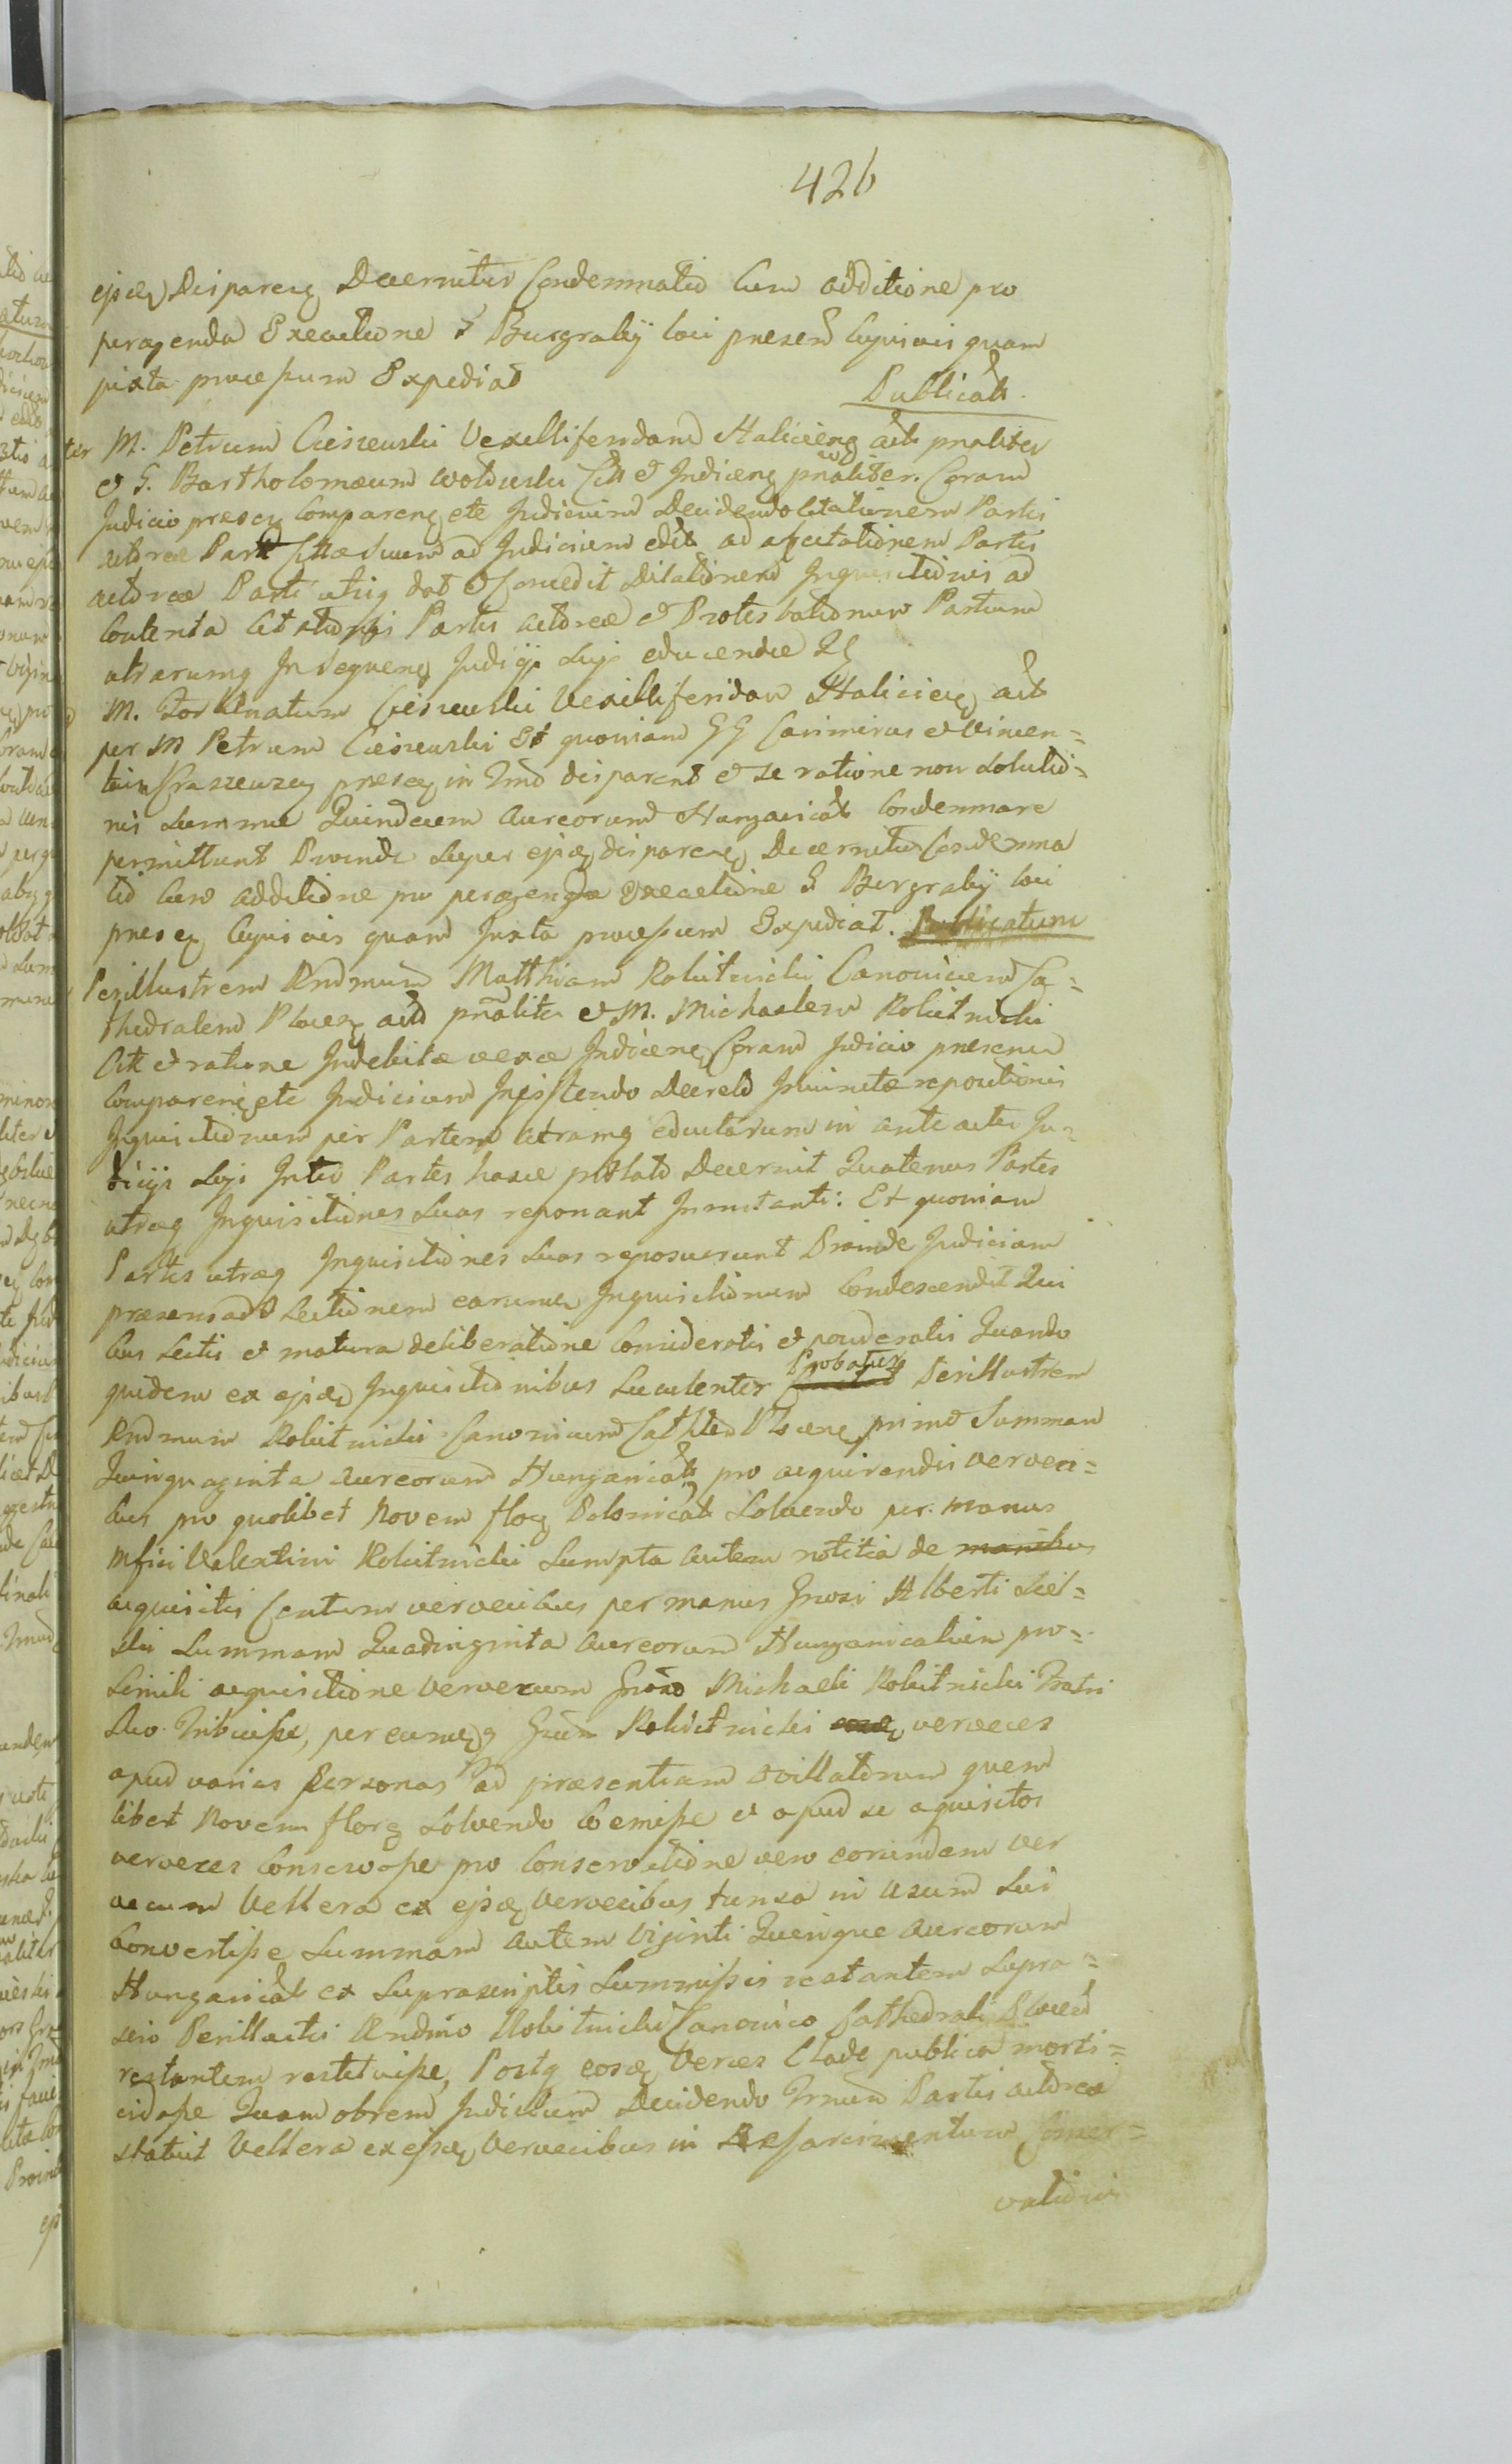 426
ejsdeq Disparenq Decernitur Condemnatio Cum additione pro
peragenda Executione G Burgrabÿ loci presen Cujusvis quam
juxta processum Expediat Publicat.
M. Petrum Cieszewski Vexilliferidam Haliciens act pnaliter
et G. Bartholomæum Cit et Indicenq pnaliter. Coram
Judicio presenq Comparenq etc Judicium Decidendo Citationem Partis
actoreæ ad Judicium edit ad affectationem Partis
actoreæ Parti utriq dat et Concedit Dilationem Inquisitionis ad
Contenta Citationis Partis actoreæ et Protestationum Partium
utrarumq In sequenq Judiciis educendæ
M. Fortunatum Cieszewski Vexilliferidam Halicienq act
per M Petrum Cieszewski Et quoniam GG Casimirus et Vincen=
tius presenq in Tmo disparent et se ratione non solutio=
nis summæ Quindecem Aureorum Hungarical Condemnare
permittunt Proinde super ejsdeq disparenq Decernitur Condemna
tio cum additione pro peragenda Executione G Burgrabÿ loci
presenq Cujusvis quam Juxta processum Expediat. Publicatum
Perillustrem Rndmum Matthiam Rokitnicki Canonicum Ca=
thedralem Plocenq act pnaliter et M. Michaelem Rokitnicki
Cit et ratione Indebitæ vexæ Indicenq Coram Judicio presenq
Comparenq etc Judicium Insistendo Decreto Intuitu repositionis
Inquisitionum per Partem utramq eductarum in ante actis Ju=
dicÿs Inter Partes hasce prolato Decernit Quatenus Partes
utræq Inquisitiones suas reponant Instanti: Et quoniam
Partes utræq Inquisitiones suas reposuerunt Proinde Judicium
præsens ad Lectionem earumq Inquisitionum Condescendit Qui
bus Lectis et matura deliberatione Consideratis et ponderatis Quando
quidem ex ejsdeq Inquisitionibus Luculenter Probatur Perillustrem
Rndmum Rokitnicki Canonicum Plocenq primo Summam
Quinquaginta Aureorum Hungarical pro acquirendis verveci=
bus pro quolibet Novem floq Polonical Solvendo per manus
Mfici Valentini Rokitnicki Sumpta autem notitia de manibus
acquisitis Centum vervecibus per manus Gnosi Alberti
ski Summam Quadraginta Aureorum Hungaricalium pro=
simili acquisitione Vervecum Gnoso Michaeli Rokitnicki Fratri
suo Tribuisse, per eumq Rokitnicki verveces
apud varias Personas ad præsentiam quem
libet Novem floreq Solvendo Coemisse et apud se aquisitos
verveces Conservasse pro Conservatione vero eorundem ver
vecum Vellera ex ejsdeq Vervecibus tunsa in Usum sui
Convertisse Summam autem Viginti Quinque Aureorum
Hungarical ex Suprascriptis Summis restantem Supra=
Perillustri Rndmo Rokitnicki Canonico Cathedrali Plocen
restantem restituisse, Postq eosdeq Clade publica morti=
cidasse Quamobrem Judicium Decidendo Tmum Partis actoreæ
statuit Vellera ex ejsdeq Vervecibus in Conser=
vationis